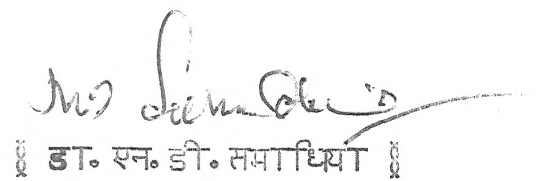 ॥ डा॰ एन॰ डी॰ समाधिया ॥